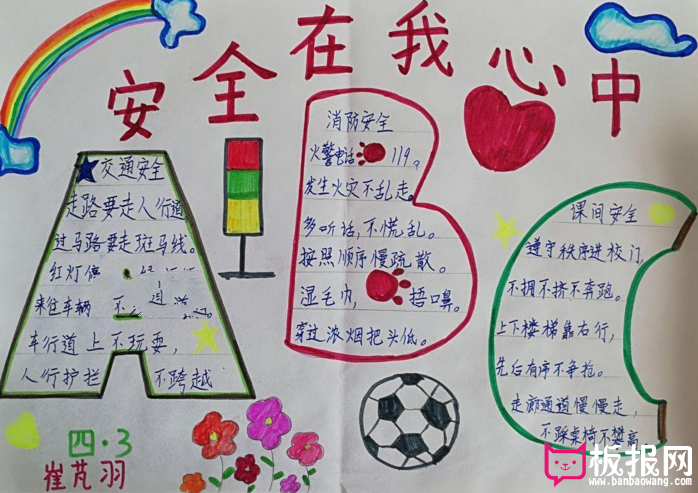 安全在我心中
交通安全
走路要走人行道
过马路要走斑马线。
红灯停
来往车辆 不
车行道上不玩耍,
人行护栏 不跨越
消防安全
火警电话 119。
发生火灾不乱走。
多听话,不慌乱。
按照顺序慢疏散。
湿毛巾, 捂嘴鼻。
穿过浓烟把头低。
课间安全
遵守秩序进校门,
不拥不挤不奔跑。
上下楼梯靠右行,
先后有序不争抢。
走廊通道慢慢走,
不踩桌椅不攀高。
四·3
崔芃羽
板报网
www.banbaowang.com